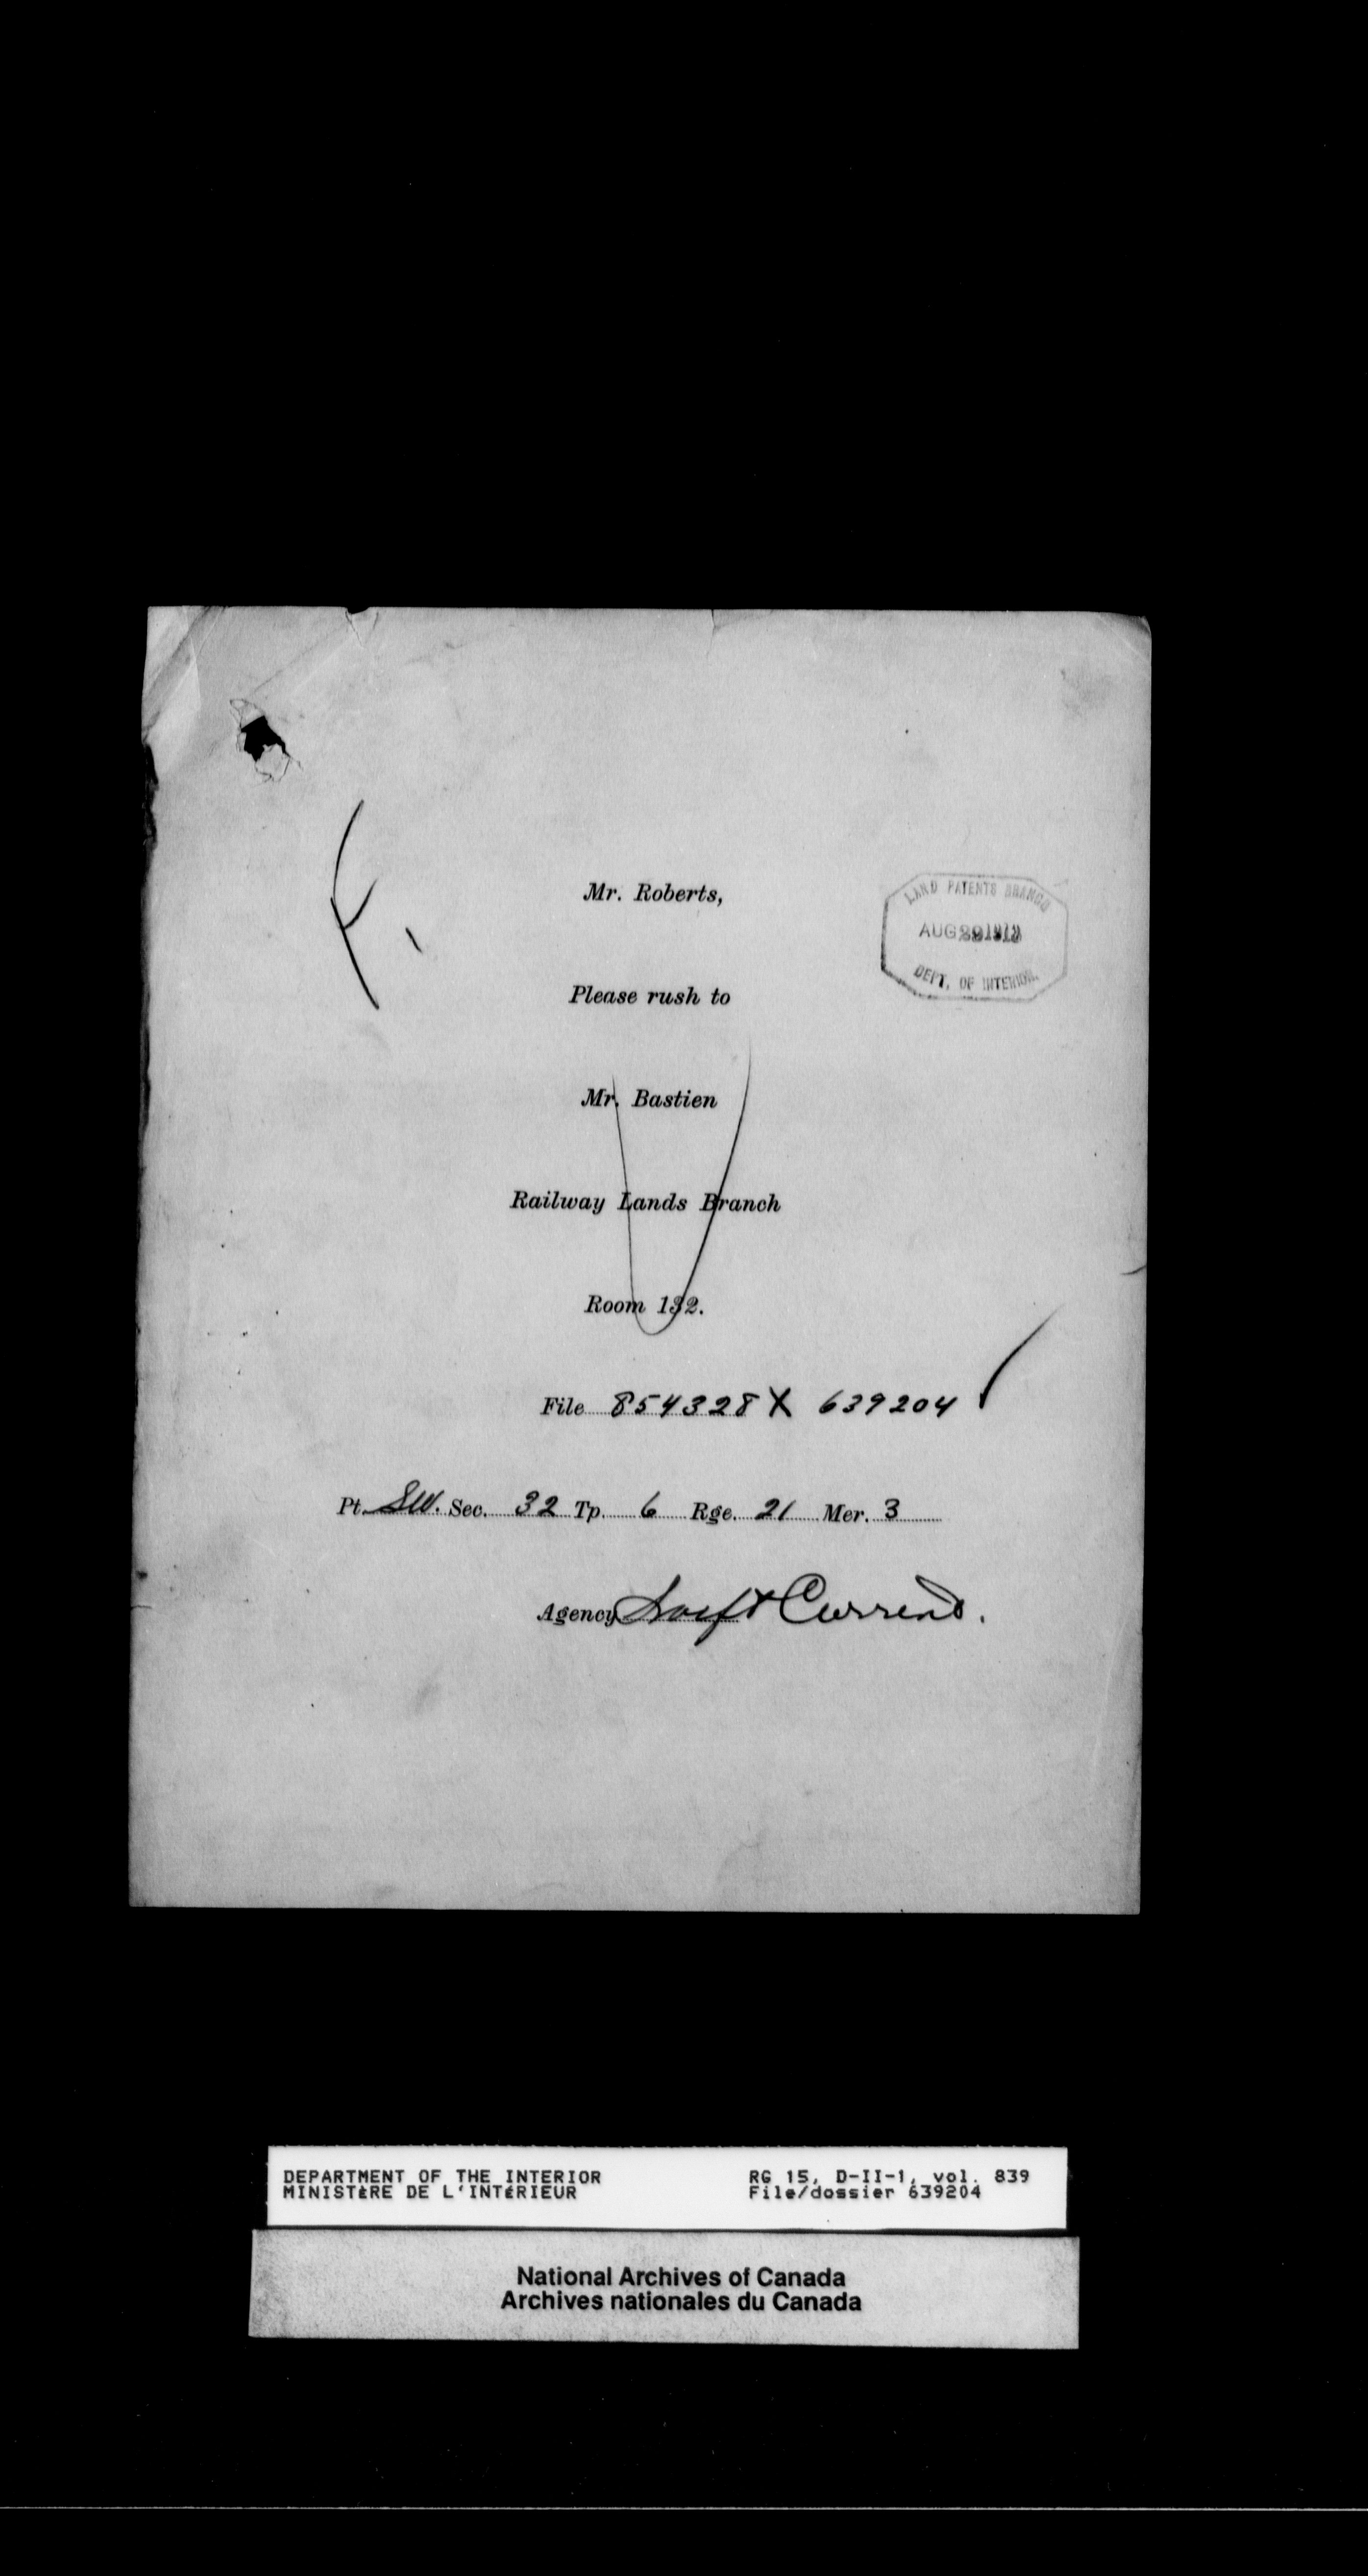 Mr. Roberts,
LAND PATENTS BRANCH
AUG
DEPT. OF INTERIOR
Please rush to
Mr. Bastien
Railway Lands Branch
Room 132.
File 854328 X 639204
Pt. SW. Sec. 32 Tp. 6 Rge. 21 Mer. 3
Agency Swift Current.
DEPARTMENT OF THE INTERIOR
MINISTÈRE DE L'INTÉRIEUR
RG 15, D-II-1, vol. 839
File/dossier 639204
National Archives of Canada
Archives nationales du Canada